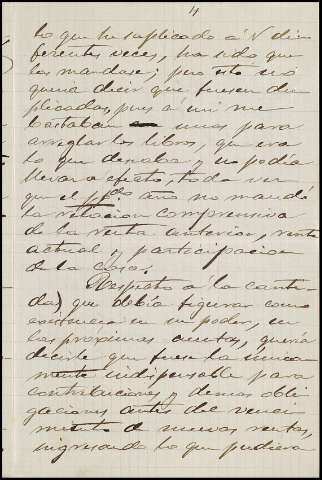 4
lo que he suplicado á V dife
ferentes veces, ha sido que
las mandase; pero esto no
queria decir que fuesen du
plicadas, pues á mi me
bastaban unas para
arreglar los libros, que era
lo que deseaba y no podia
llevar a efecto, toda vez
que el p.pdo año no mandó
la relacion comprensiva
de la renta anterior, renta
actual y participacion
de la Casa.
Respecto á la canti-
dad que debía figurar como
existencia en su poder, en
las proximas cuentas, queria
decirle que fuese la unica-
mente indispensable para
contribuciones y demas obli
gaciones antes del venci
miento de nuevas rentas,
ingresando lo que pudiera